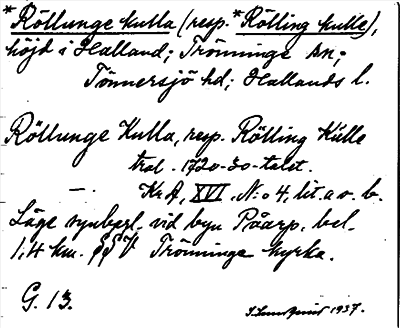 *Röllunge kulla (resp. *Rölling kulle),
höjd i Halland; Trönninge sn;
Tönnersjö hd; Hallands l.
Röllunge Kulla, resp. Rölling Kulle
trol. 1720-30-talet.
— KrA, XVI, N:o 4, lit. a o. b.
Läge synberl. vid byn Påarp, bel.
1,4 km. SSV Trönninge kyrka.
G. 13.
1937.